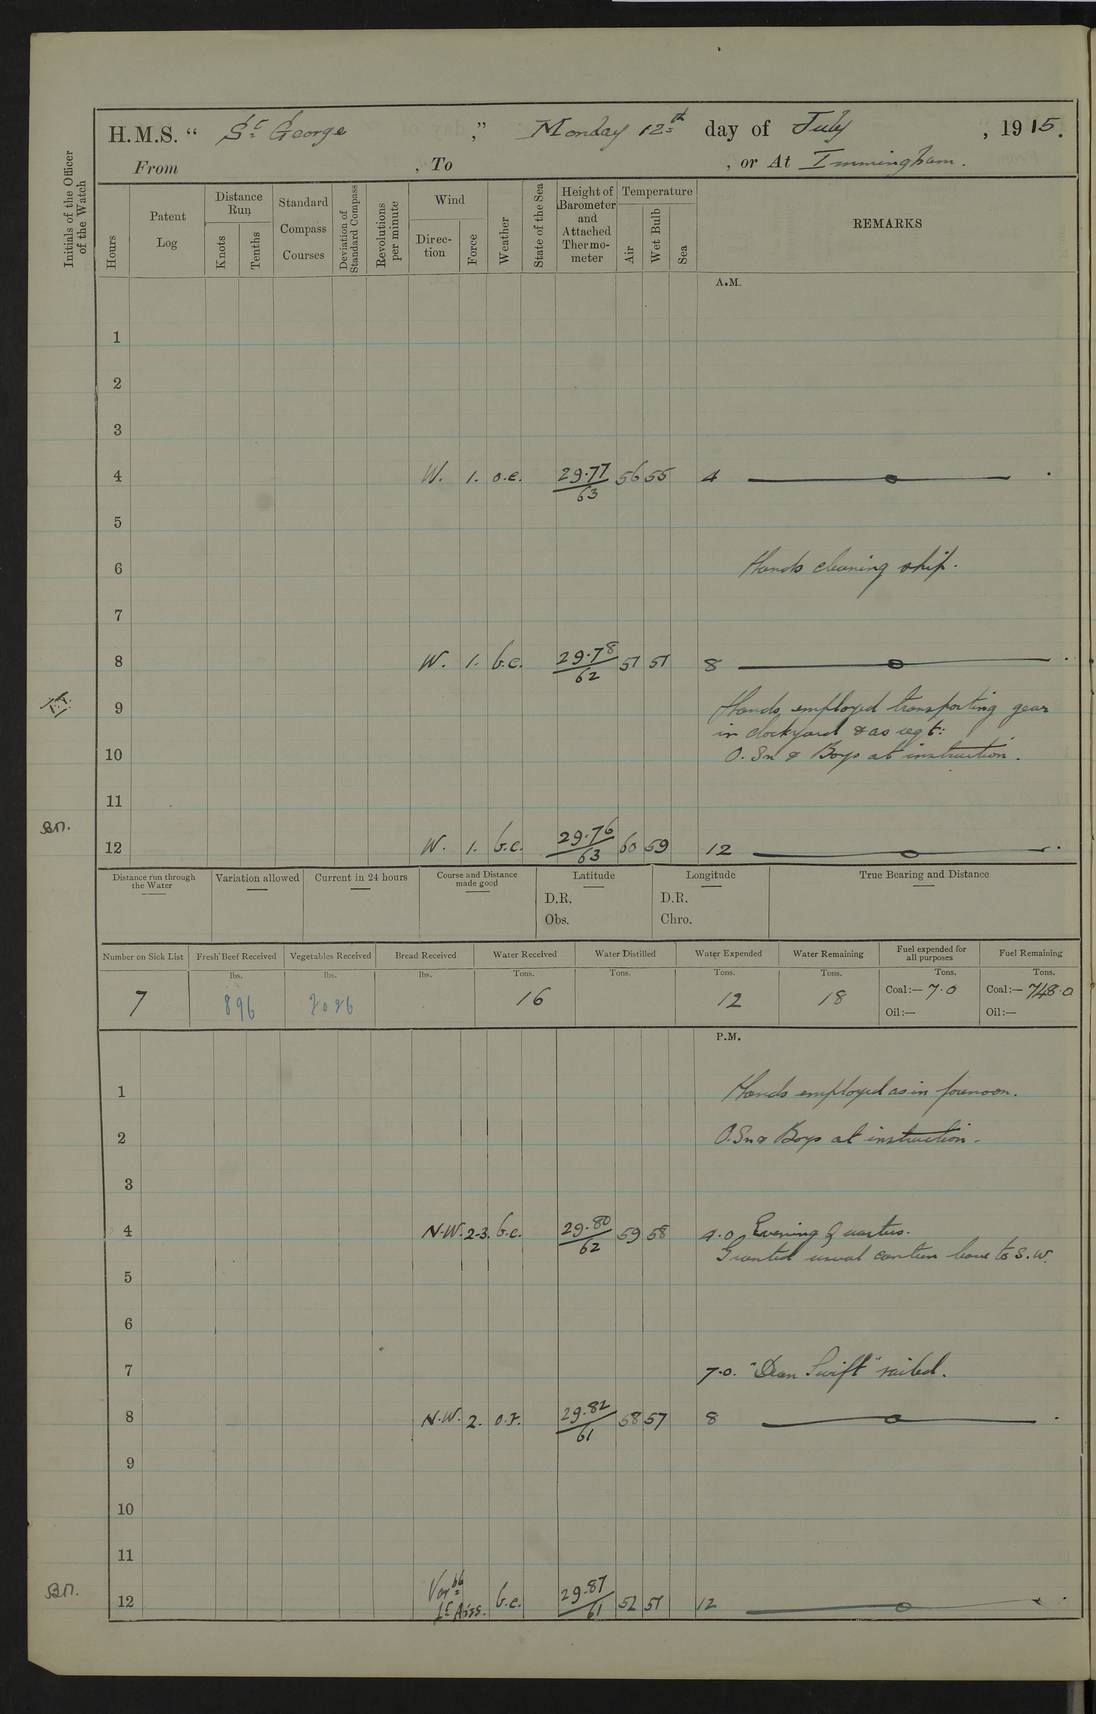 H.M.S. “ St George ,” Monday 12th day of July , 1915.
From , To , or At Immingham.
Initials of the Officer of the Watch
Hours
Patent Log
Distance Run
Knots
Tenths
Standard Compass Courses
Deviation of Standard Compass
Revolutions per minute
Wind
Direc-tion
Force
Weather
State of the Sea
Height of Barometer and Attached Thermo-meter
Temperature
Air
Wet Bulb
Sea
REMARKS
A.M.
1
2
3
4 W. 1. o.c. 29.77/63 56 55 4
5
6 Hands cleaning ship.
7
8 W. 1. b.c. 29.78/62 57 57 8
9 Hands employed transporting gear
in dockyard & as reqt:
10 O. Sn & Boys at instruction.
11
12 W. 1. b.c. 29.76/63 60 59 12
Distance run through the Water
Variation allowed
Current in 24 hours
Course and Distance made good
Latitude
D.R.
Obs.
Longitude
D.R.
Chro.
True Bearing and Distance
Number on Sick List
Fresh Beef Received
Vegetables Received
Bread Received
Water Received
Water Distilled
Water Expended
Water Remaining
Fuel expended for all purposes
Fuel Remaining
lbs. lbs. lbs. Tons. Tons. Tons. Tons. Tons. Tons.
7 896 16 12 18 Coal:— 7.0 Coal:— 748.0
Oil:— Oil:—
P.M.
1 Hands employed as in forenoon.
2 O. Sn & Boys at instruction.
3
4 N.W. 2-3. b.c. 29.80/62 59 58 4.0 Evening Quarters.
Granted usual canteen leave to S.W.
5
6
7 7.0. "Dean Swift" sailed.
8 N.W. 2. o.r. 29.82/61 58 57 8
9
10
11
12 Varble Lt Airs. b.c. 29.87/61 52 51 12